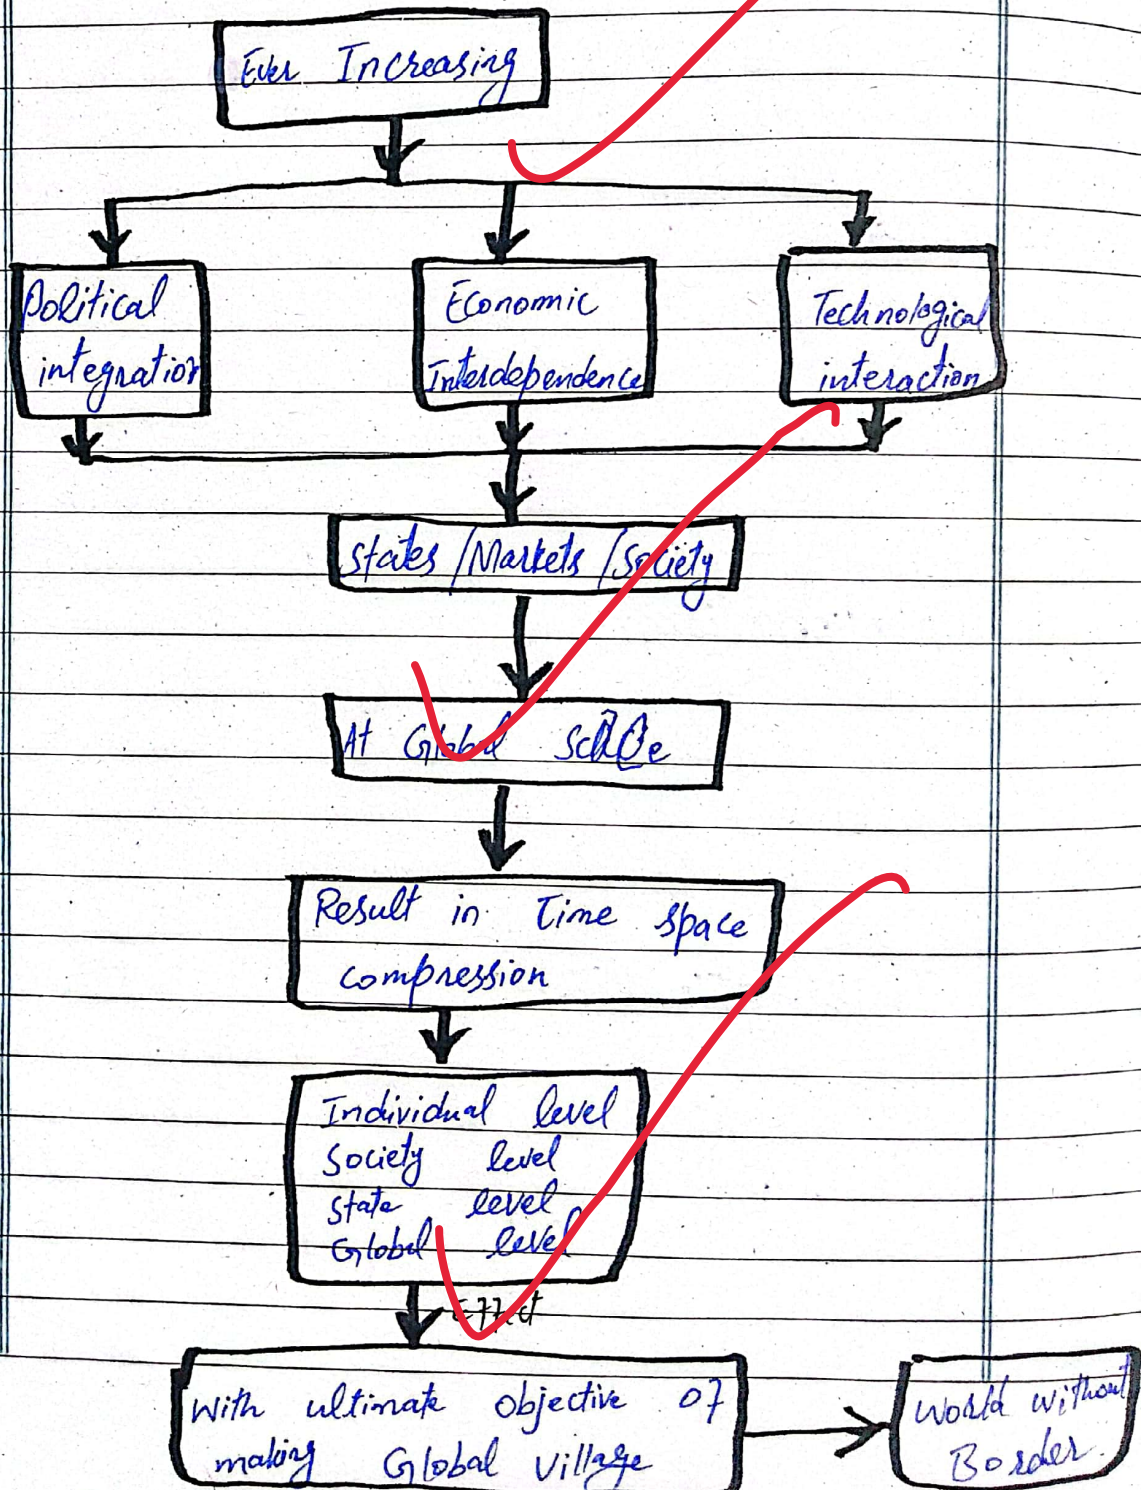 Ever Increasing
Political
integration
Economic
Interdependence
Technological
interaction
States/Markets/Society
At Global Scale
Result in Time space
compression
Individual level
Society level
State level
Global level
Effect
With ultimate objective of
making Global Village
World without
Border.